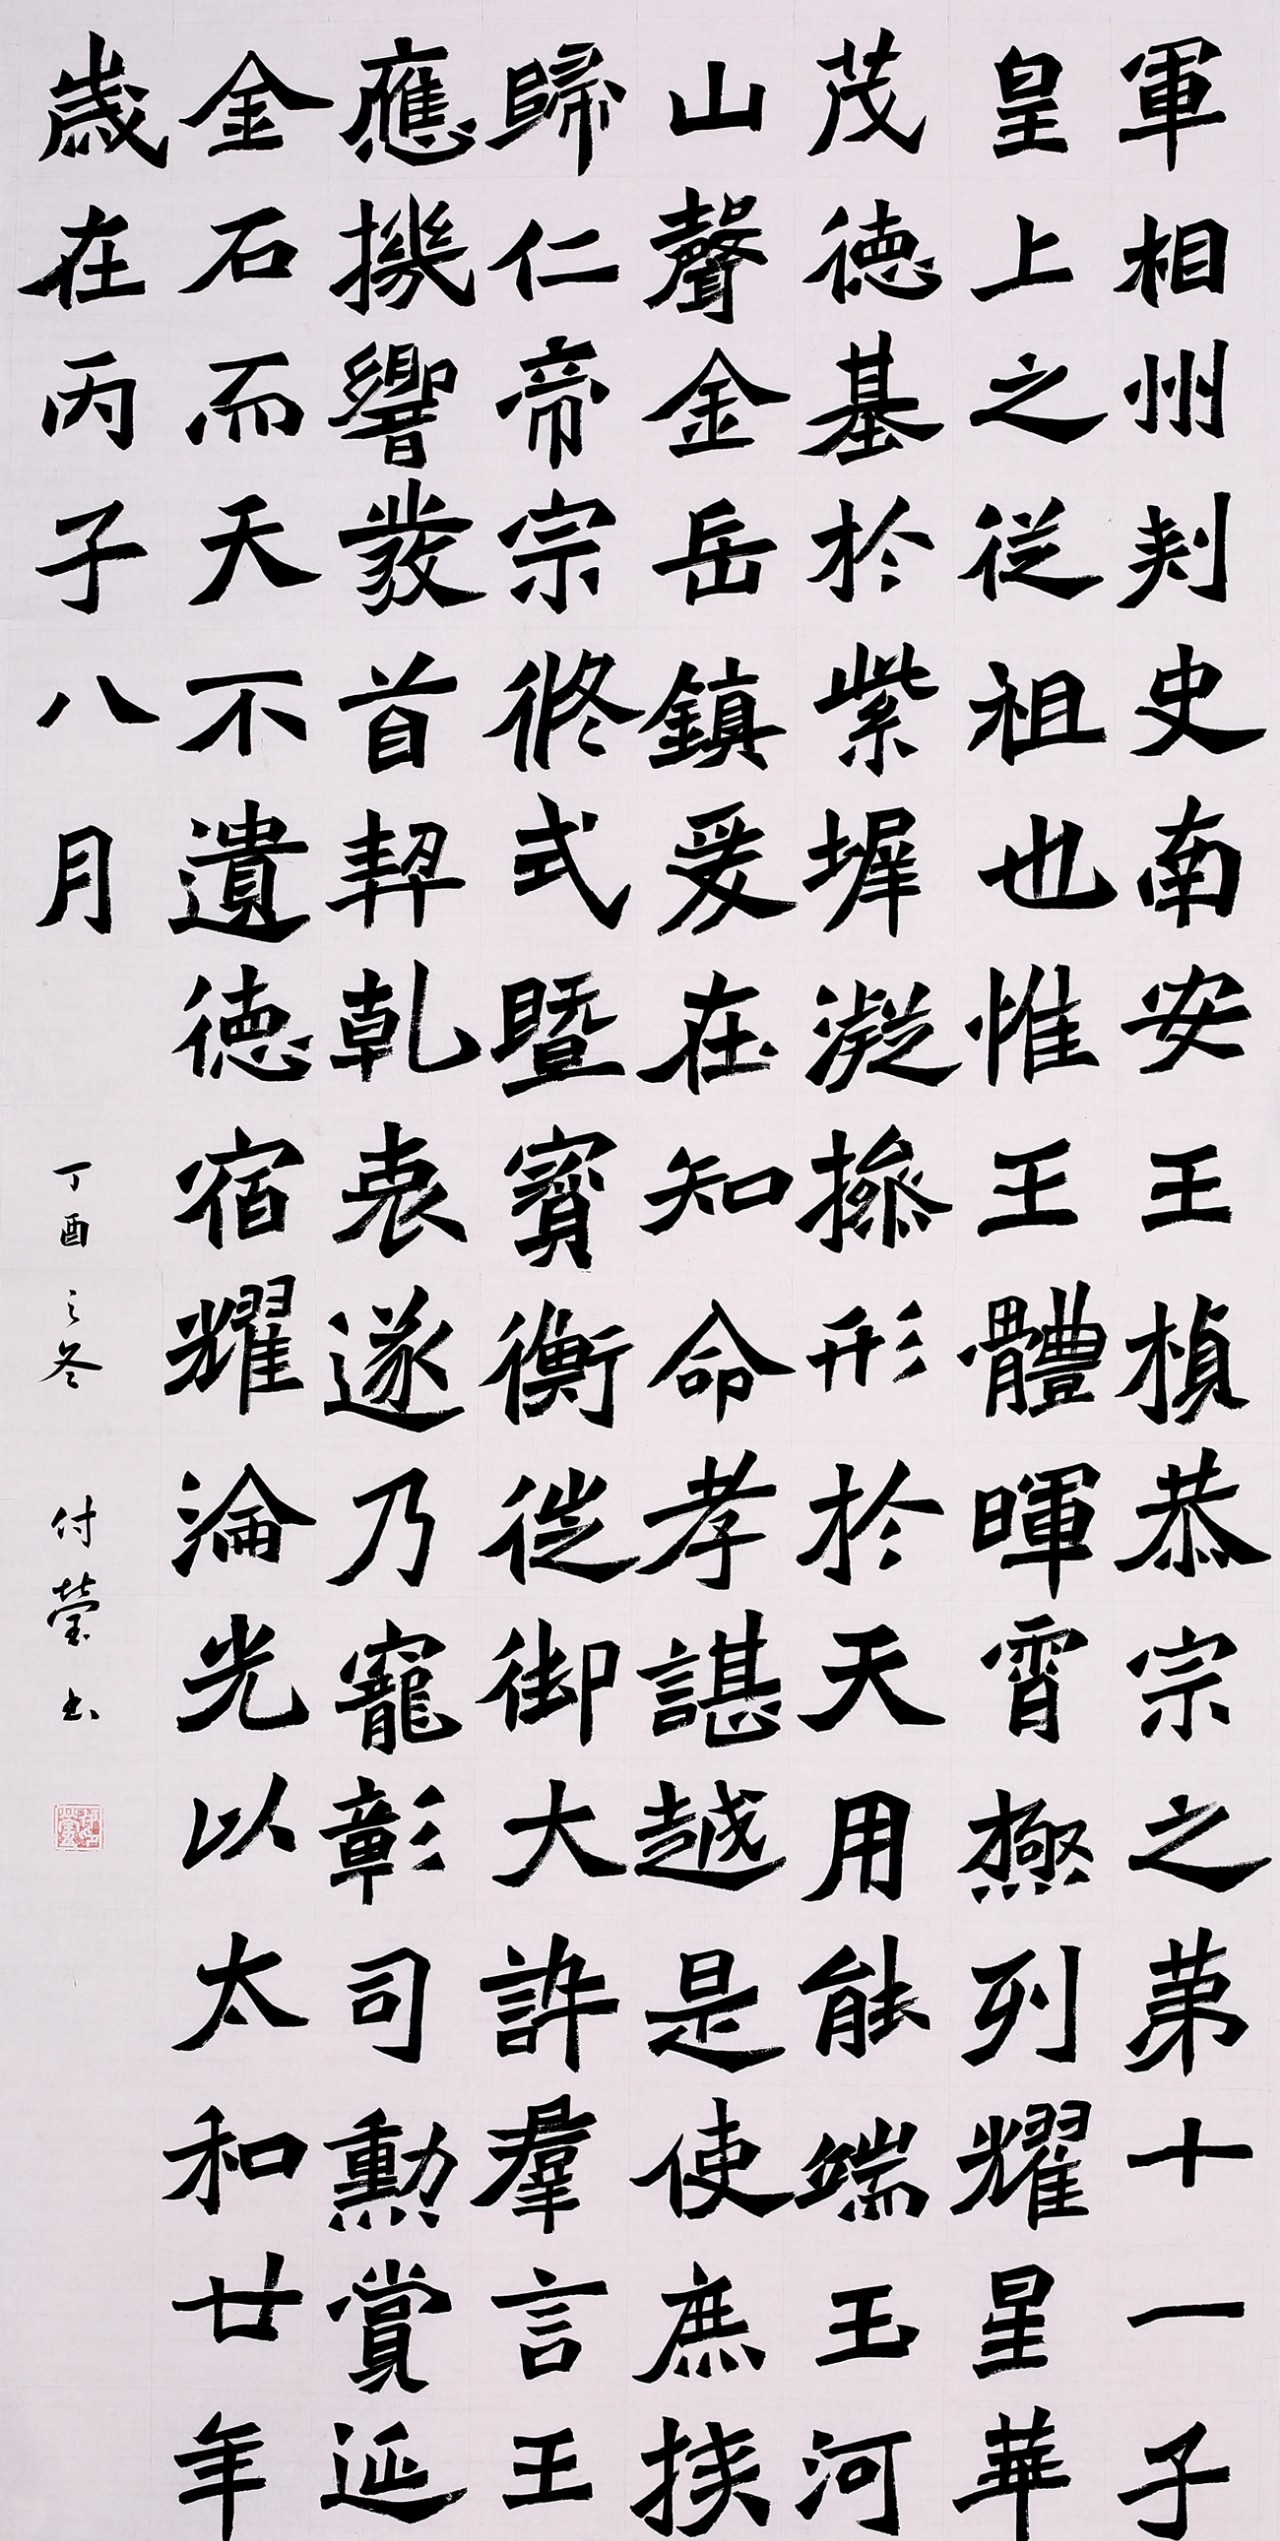 軍相州刺史南安王楨恭宗之苐十一子
皇上之従祖也惟王體暉霄極列耀星華
茂德基於紫墀凝操形於天用能端玉河
山聲金岳鎮爰在知命孝諶越是使庶揆
歸仁帝宗攸式暨寶衡徙御大訴羣言王
應機響發首契乾衷遂乃寵彰司勳賞延
金石而天不遺德宿耀淪光以太和廿年
歲在丙子八月
丁酉之冬 付莹书